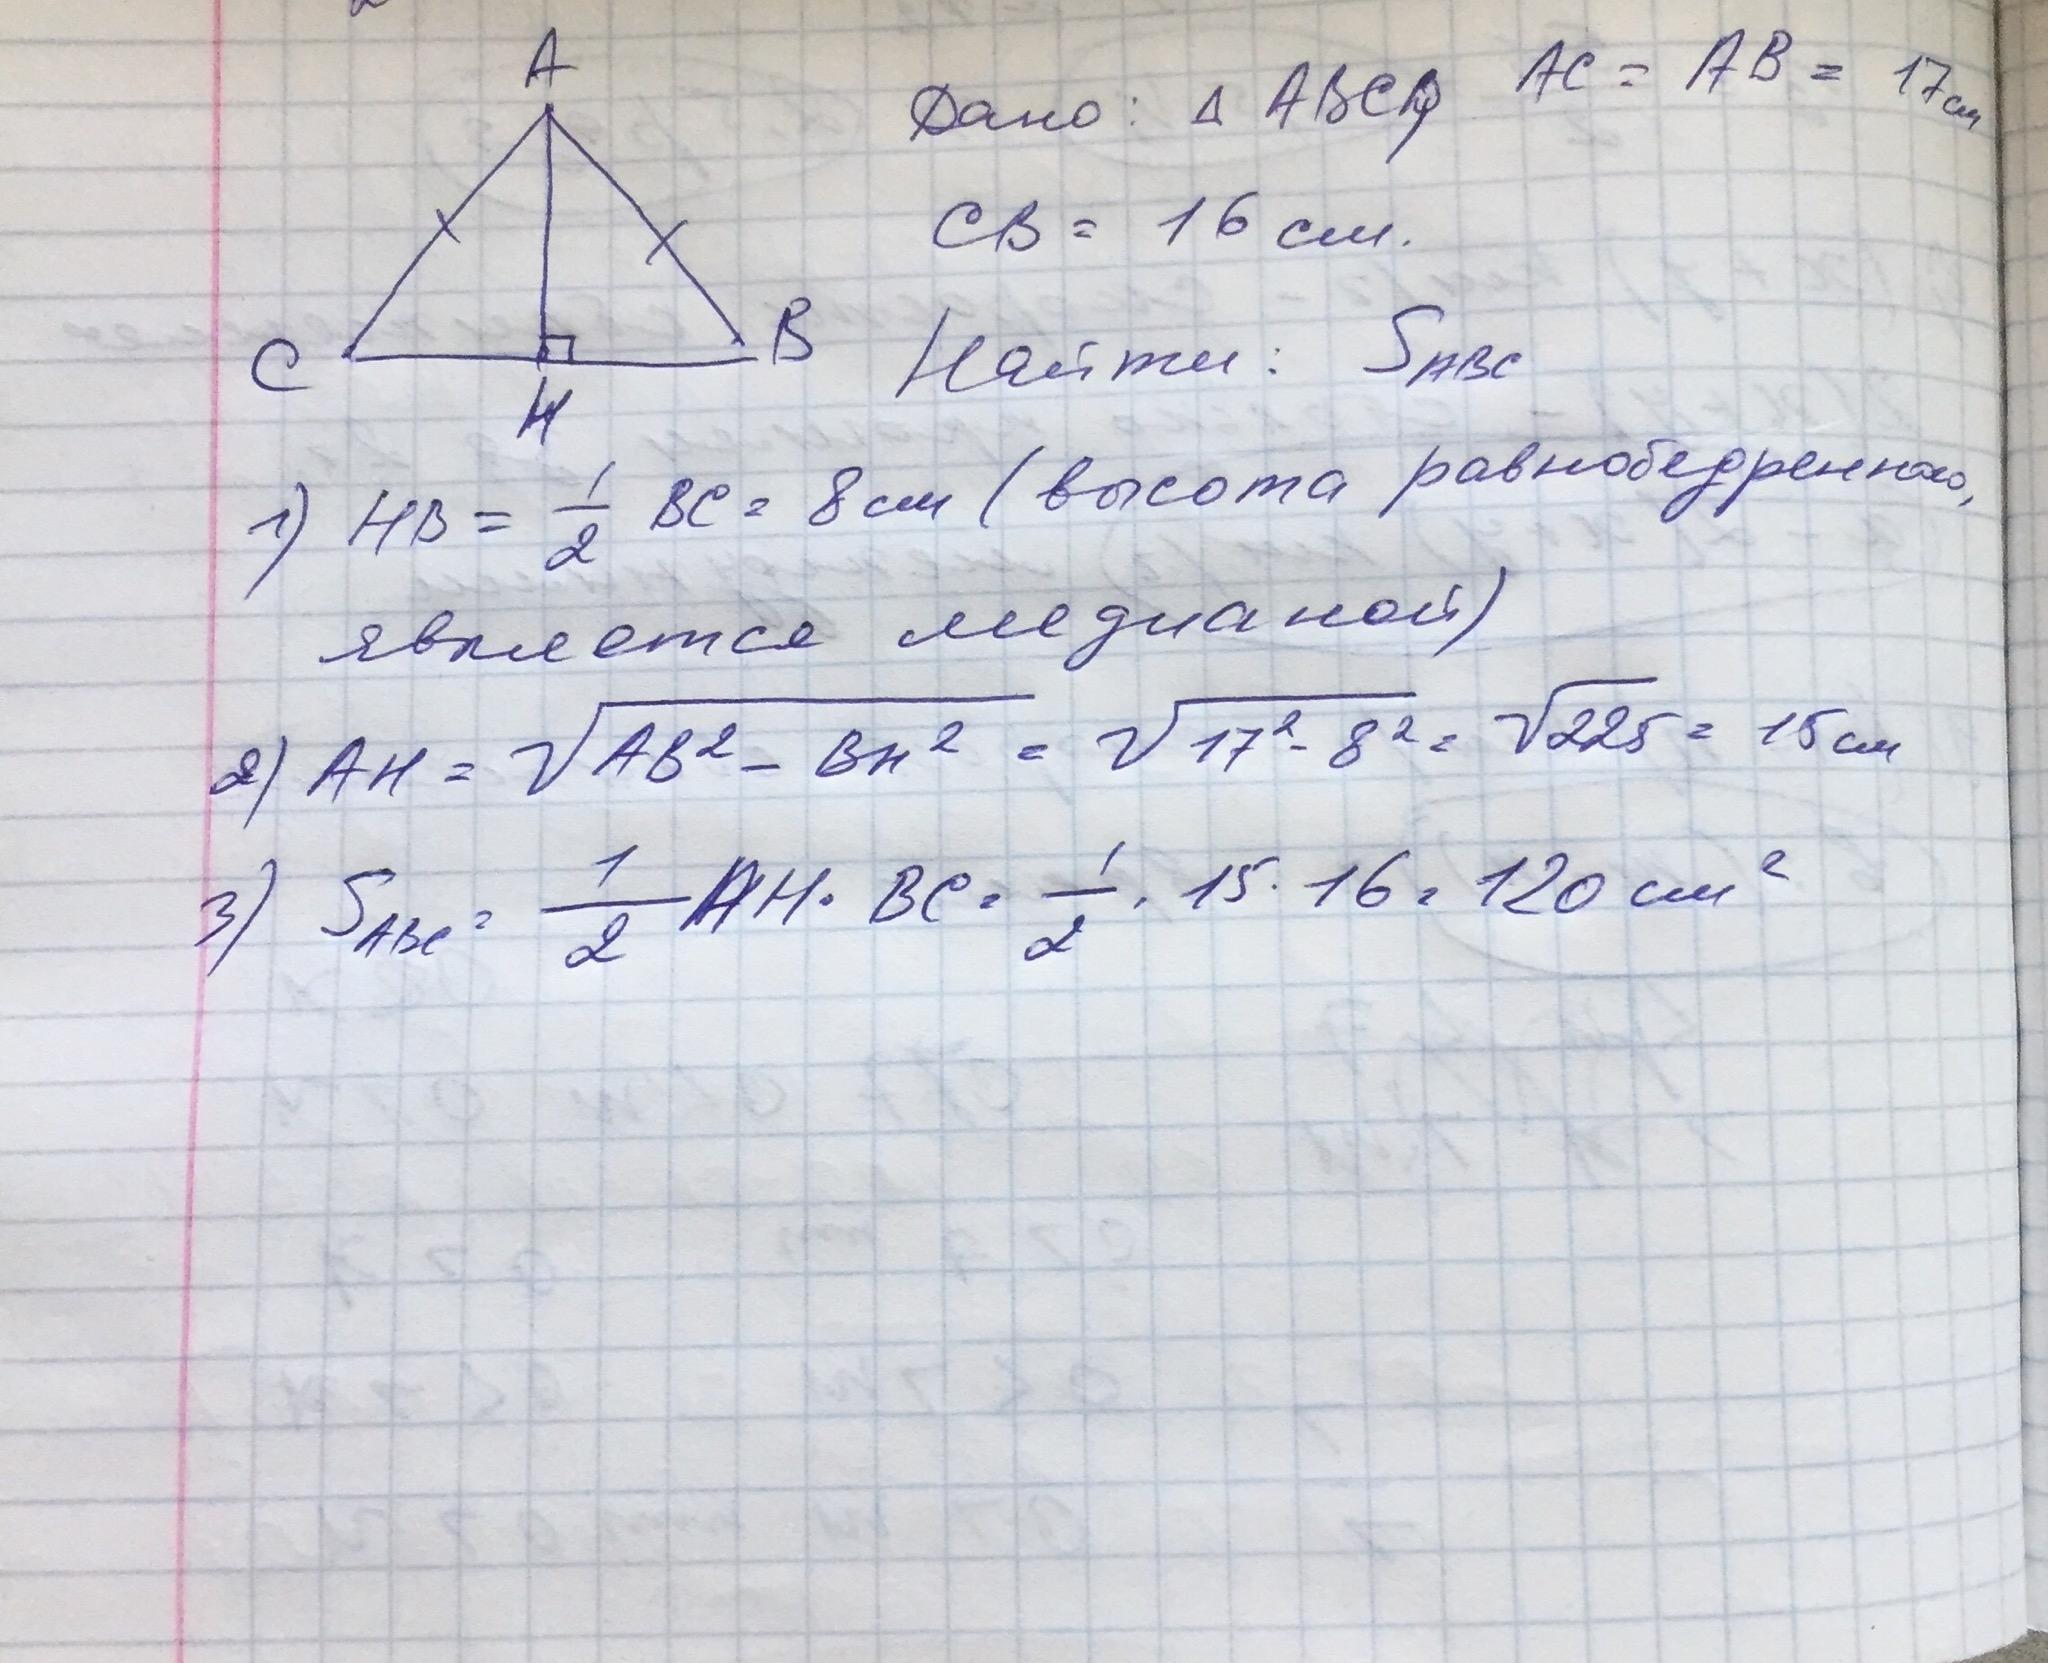 A
C
B
H
Дано: Δ ABC, AC = AB = 17см
CB = 16 см.
Найти: S_ABC
1) HB = 1/2 BC = 8см (высота равнобедренного,
является медианой)
2) AH = √(AB² - BH²) = √(17² - 8²) = √225 = 15 см
3) S_ABC = 1/2 AH · BC = 1/2 · 15 · 16 = 120 см²